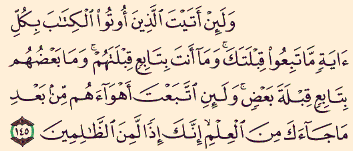 وَلَئِنْ أَتَيْتَ الَّذِينَ أُوتُوا۟ الْكِتَٰبَ بِكُلِّ
ءَايَةٍ مَّا تَبِعُوا۟ قِبْلَتَكَ ۚ وَمَآ أَنتَ بِتَابِعٍ قِبْلَتَهُمْ ۚ وَمَا بَعْضُهُم
بِتَابِعٍ قِبْلَةَ بَعْضٍ ۚ وَلَئِنِ اتَّبَعْتَ أَهْوَآءَهُم مِّنۢ بَعْدِ
مَا جَآءَكَ مِنَ الْعِلْمِ ۙ إِنَّكَ إِذًا لَّمِنَ الظَّٰلِمِينَ ١٤٥